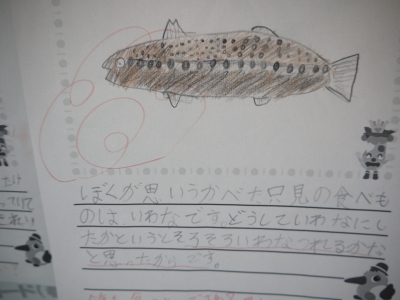 ぼくが思いうかべた只見の食べも
のは、いわなです。どうしていわなにし
たかというとそろそろいわなつれるかな
と思ったからです。